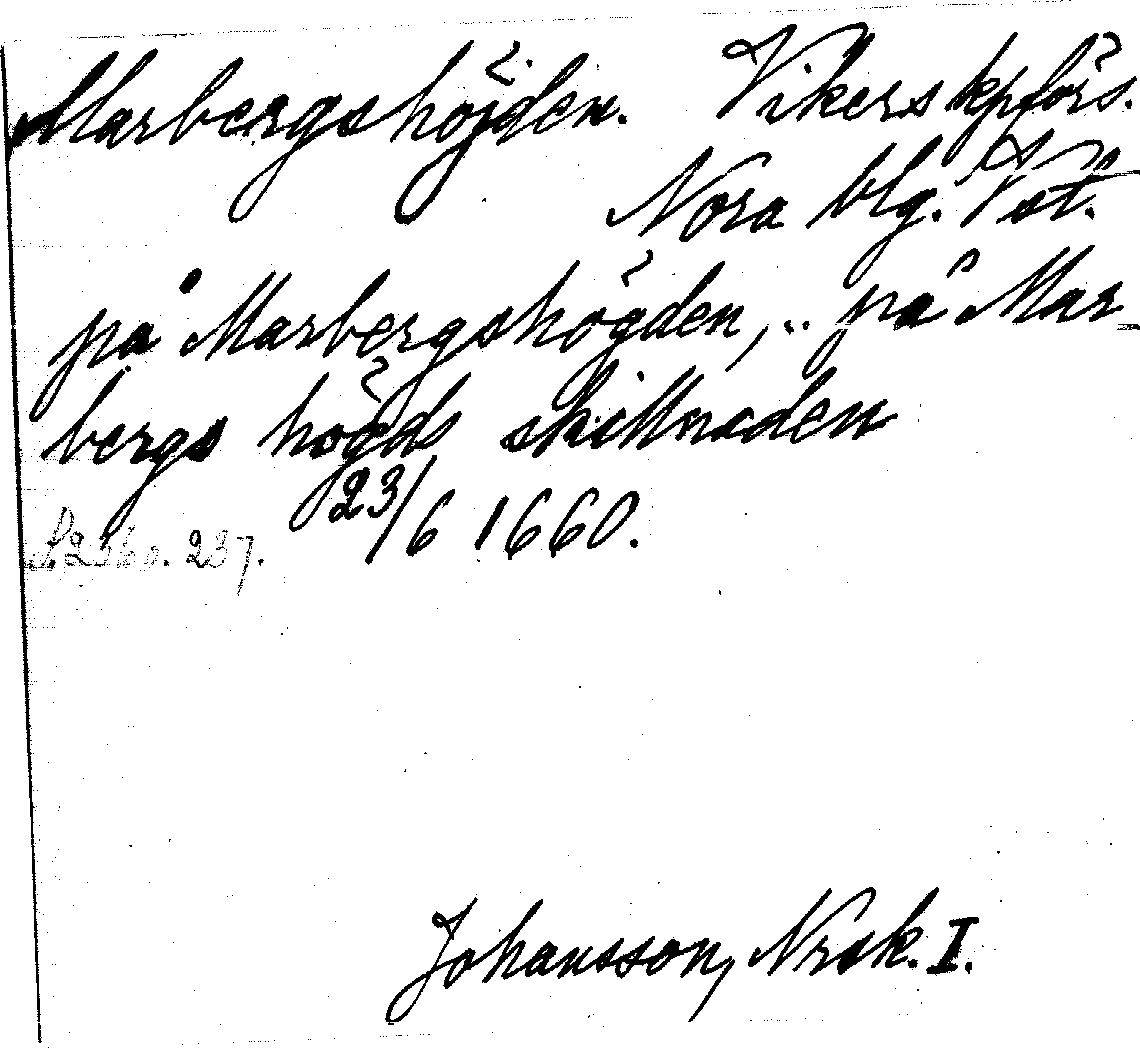 Marbergshöjden. Vikers kpförs.
Nora blg. Vst.
på Marbergshögden, .. på Mar-
bergs högds skillnaden
23/6 1660.
s. 237.
Johansson, Nrsk. I.